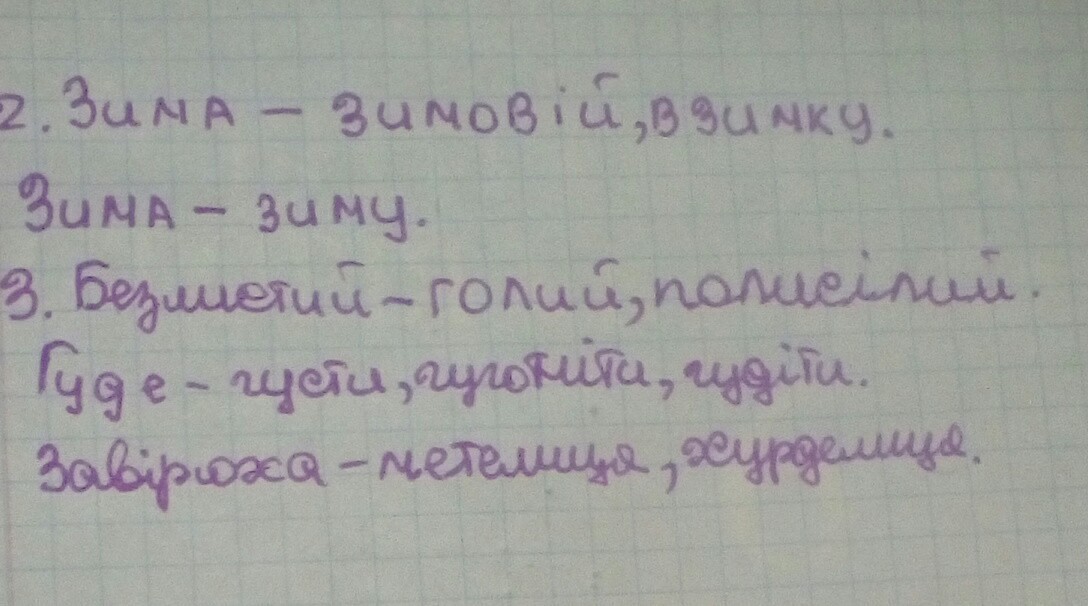 2. Зима – зимовій, взимку.
Зима – зиму.
3. Безлистий – голий,
Гуде – густи, гуготіти, гудіти.
Завірюха – метелиця, хурделиця.